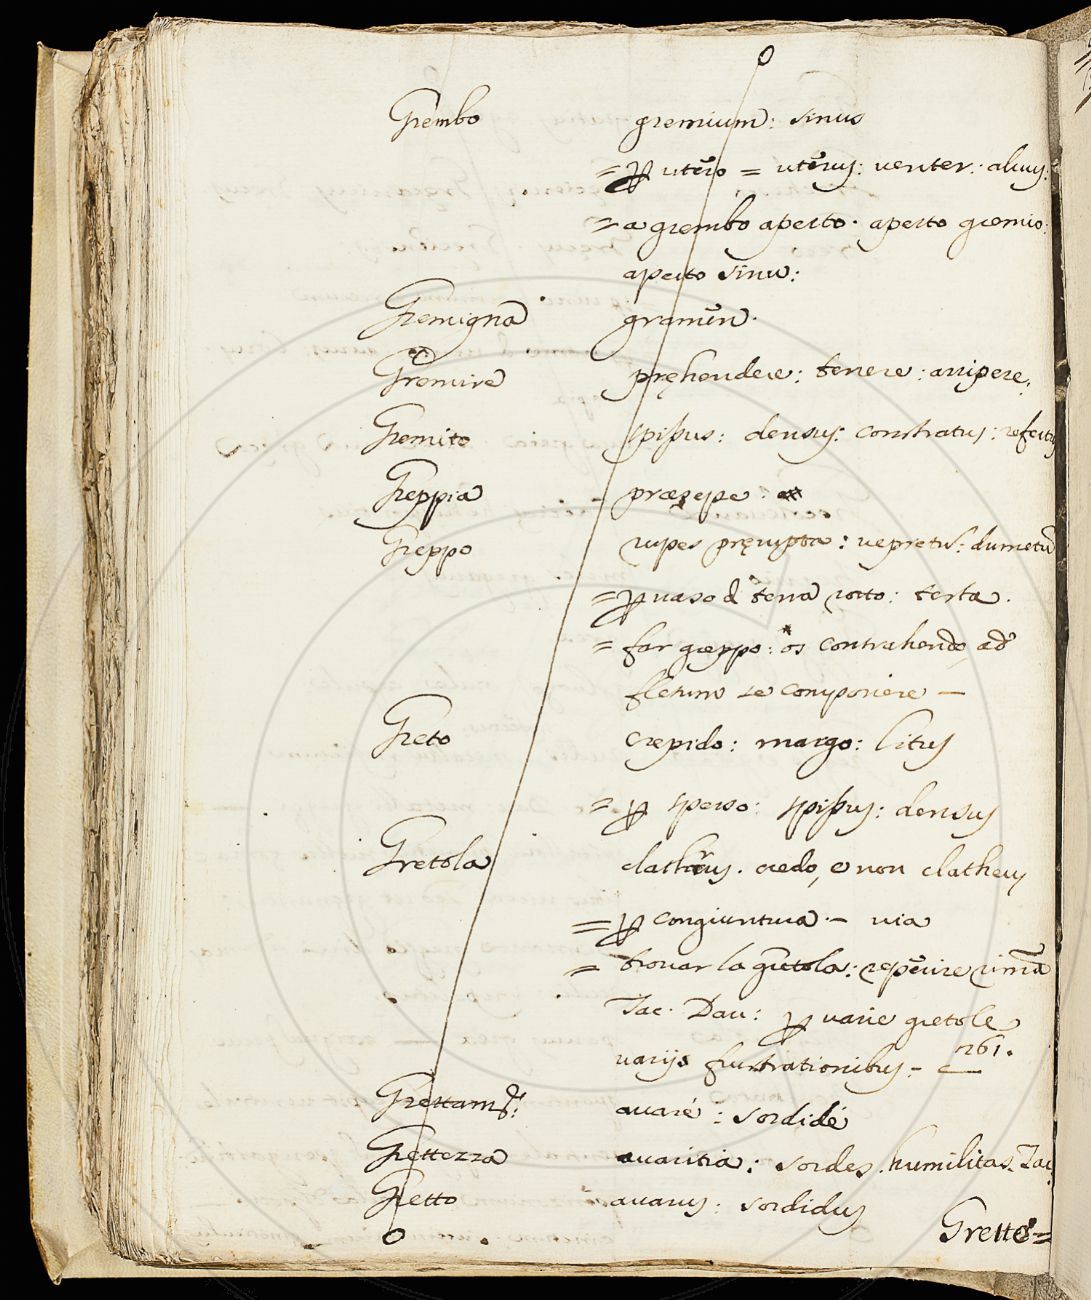 Grembo gremium: sinus
= p utero = uterus: venter: aluus:
= a grembo aperto. aperto gremio:
aperto sinu:
Gremigna gramen.
Gremire pręhendere: tenere: arripere.
Gremito spissus: densus: constratus: refertus
Greppia præsepe:
Greppo rupes pręrupta: uepretu: dumetu
= p uaso d terra rotto: testa.
= far greppo: os contrahendo, ad
fletum se componere –
Greto crepido: margo: litus
= p sperso: spissus: densus
Gretola clathrus. credo, e non clatheus
= p congiuntura – uia
= trouar la gretola: reperire rima
Jac. Dau: p uarie gretole
varijs frustrationibus – 261.
Grettam.te: auarè: sordidè
Grettezza auaritia: sordes. humilitas. Tac.
Gretto auarus: sordidus
Gretto =